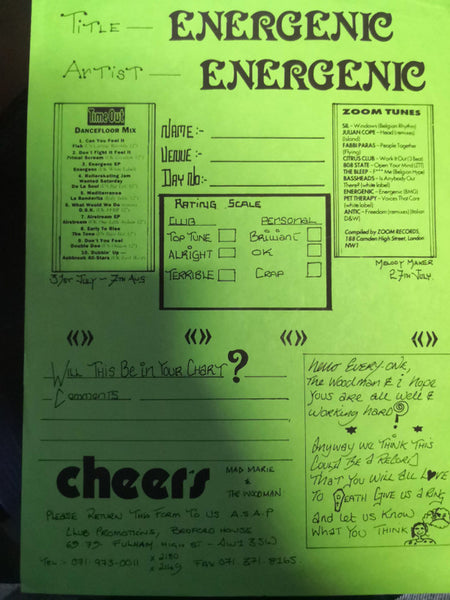 TITLE — ENERGENIC
ARTIST — ENERGENIC
Time Out
DANCEFLOOR MIX
1. Can You Feel It
Fish
2. Don't Fight it Feel It
Primal Scream
3. Energenic EP
Energenic
4. Rollerskating Jam
Wanted Saturday
De La Soul
5. Mediterranea
La Banderita
6. What Would We Do
D.S.K.
7. Airstream EP
Airstream
8. Early To Rise
The Tone
9. Don't You Feel
Double Dee
10. Dubbin' Up —
Ashbrook All-Stars
31ST JULY – 7TH AUG
NAME:-
VENUE:-
DAY NO:-
RATING SCALE
CLUB PERSONAL
TOP TUNE BRILLIANT
ALRIGHT OK
TERRIBLE CRAP
ZOOM TUNES
SIL – Windows (Belgian Rhythm)
JULIAN COPE – Head (remixes)
(Island)
FABBI PARAS – People Together
(Flying)
CITRUS CLUB – Work It Out (3 Beat)
BGB STATE – Open Your Mind (ZTT)
THE BLEEP – F*** Me (Belgian Hope)
BASSHEADS – Is Anybody Out
There? (white label)
ENERGENIC – Energenic (BMG)
PET THERAPY – Voices That Care
(white label)
ANTIC – Freedom (remixes) (Italian
D&W)
Compiled by ZOOM RECORDS,
188 Camden High Street, London
NW1
MELODY MAKER
27TH JULY.
WILL THIS BE IN YOUR CHART?
COMMENTS
HELLO EVERY-ONE,
THE WOODMAN & I HOPE
YOUS ARE ALL WELL &
WORKING HARD!
ANYWAY WE THINK THIS
COULD BE A RECORD
THAT YOU WILL ALL LOVE
TO DEATH GIVE US A RING
AND LET US KNOW
WHAT YOU THINK
cheers
MAD MARIE
& THE WOODMAN
PLEASE RETURN THIS FORM TO US A.S.A.P
CLUB PROMOTIONS, BEDFORD HOUSE
69-79 FULHAM HIGH ST – SW1 3JW.
TEL:- 071-973-0011 x 2150
x 2149 FAX 071.371.8165.